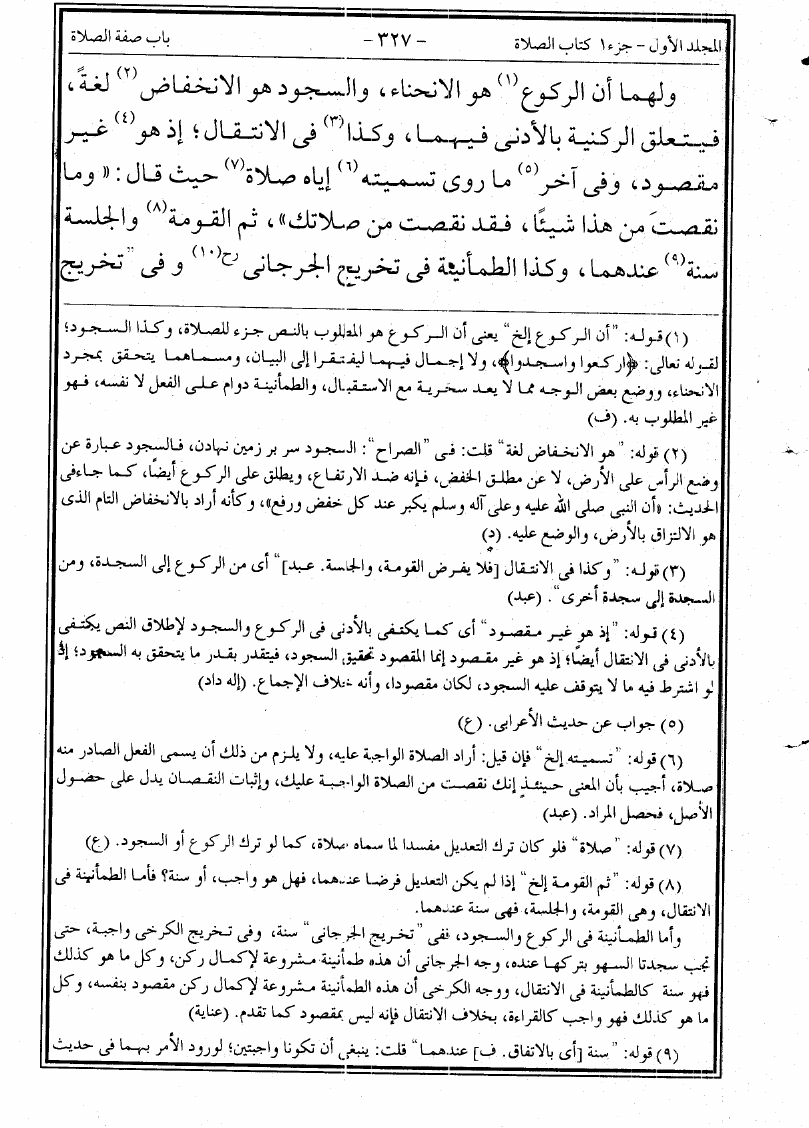 المجلد الأول - جزء ١ كتاب الصلاة - ٣٢٧ - باب صفة الصلاة
ولهما أن الركوع(١) هو الانحناء، والسجود هو الانخفاض(٢) لغةً،
فيتعلق الركنية بالأدنى فيهما، وكذا(٣) فى الانتقال؛ إذ هو(٤) غير
مقصود، وفى آخر(٥) ما روى تسميته(٦) إياه صلاة(٧) حيث قال: «وما
نقصتَ من هذا شيئًا، فقد نقصت من صلاتك»، ثم القومة(٨) والجلسة
سنة(٩) عندهما، وكذا الطمأنينة فى تخريج الجرجانى رح(١٠) و فى "تخريج
(١) قوله: "أن الركوع إلخ" يعنى أن الركوع هو المطلوب بالنص جزء للصلاة، وكذا السجود؛
لقوله تعالى: ﴿اركعوا واسجدوا﴾، ولا إجمال فيهما ليفتقرا إلى البيان، ومسماهما يتحقق بمجرد
الانحناء، ووضع بعض الوجه مما لا يعد سخرية مع الاستقبال، والطمأنينة دوام على الفعل لا نفسه، فهو
غير المطلوب به. (ف)
(٢) قوله: "هو الانخفاض لغة" قلت: فى "الصراح": السجود سر بر زمين نهادن، فالسجود عبارة عن
وضع الرأس على الأرض، لا عن مطلق الخفض، فإنه ضد الارتفاع، ويطلق على الركوع أيضًا، كما جاءفى
الحديث: «أن النبى صلى الله عليه وعلى آله وسلم يكبر عند كل خفض ورفع»، وكأنه أراد بالانخفاض التام الذى
هو الالتزاق بالأرض، والوضع عليه. (د)
(٣) قوله: "وكذا فى الانتقال [فلا يفرض القومة، والجلسة. عبد]" أى من الركوع إلى السجدة، ومن
السجدة إلى سجدة أخرى". (عبد)
(٤) قوله: "إذ هو غير مقصود" أى كما يكتفى بالأدنى فى الركوع والسجود لإطلاق النص يكتفى
بالأدنى فى الانتقال أيضًا؛ إذ هو غير مقصود إنما المقصود تحقيق السجود، فيتقدر بقدر ما يتحقق به السجود؛ إذ
لو اشترط فيه ما لا يتوقف عليه السجود، لكان مقصودا، وأنه خلاف الإجماع. (إله داد)
(٥) جواب عن حديث الأعرابى. (ع)
(٦) قوله: "تسميته إلخ" فإن قيل: أراد الصلاة الواجبة عليه، ولا يلزم من ذلك أن يسمى الفعل الصادر منه
صلاة، أجيب بأن المعنى حينئذ إنك نقصت من الصلاة الواجبة عليك، وإثبات النقصان يدل على حضول
الأصل، فحصل المراد. (عبد)
(٧) قوله: "صلاة" فلو كان ترك التعديل مفسدا لما سماه صلاة، كما لو ترك الركوع أو السجود. (ع)
(٨) قوله: "ثم القومة إلخ" إذا لم يكن التعديل فرضا عندهما، فهل هو واجب، أو سنة؟ فأما الطمأنينة فى
الانتقال، وهى القومة، والجلسة، فهى سنة عندهما.
وأما الطمأنينة فى الركوع والسجود، ففى "تخريج الجرجانى" سنة، وفى تخريج الكرخى واجبة، حتى
تجب سجدتا السهو بتركها عنده، وجه الجرجانى أن هذه طمأنينة مشروعة لإكمال ركن، وكل ما هو كذلك
فهو سنة كالطمأنينة فى الانتقال، ووجه الكرخى أن هذه الطمأنينة مشروعة لإكمال ركن مقصود بنفسه، وكل
ما هو كذلك فهو واجب كالقراءة، بخلاف الانتقال فإنه ليس بمقصود كما تقدم. (عناية)
(٩) قوله: "سنة [أى بالاتفاق. ف] عندهما" قلت: ينبغى أن تكونا واجبتين؛ لورود الأمر بهما فى حديث